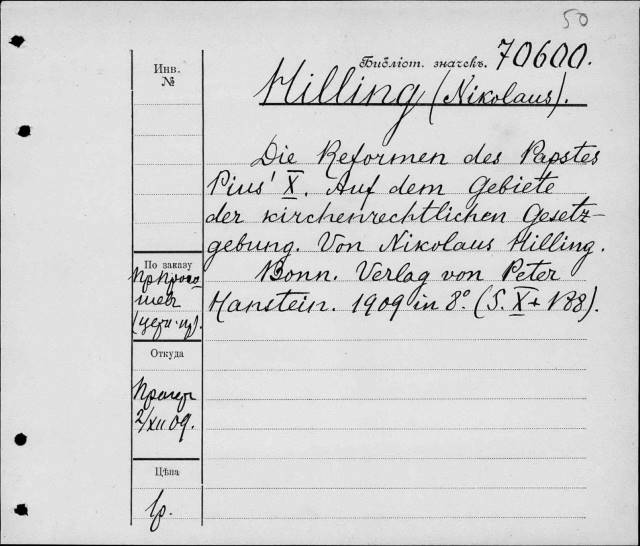 50
Библіот. значекъ. 70600.
Инв.
№
Hilling (Nikolaus).
Die Reformen des Papstes
Pius' X. Auf dem Gebiete
der kirchenrechtlichen Gesetz-
gebung. Von Nikolaus Hilling.
Bonn. Verlag von Peter
Hanstein. 1909 in 8° (S. X + 188).
По заказу
Откуда
2/XII 09.
Цѣна
1р.